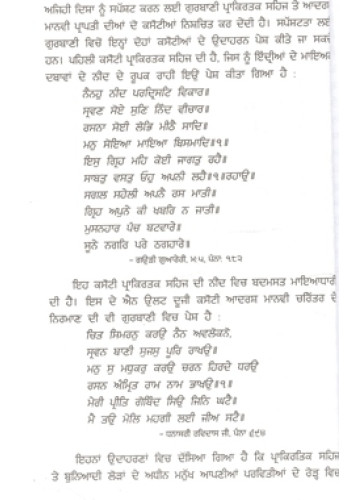 ਅਜਿਹੀ ਦਿਸ਼ਾ ਨੂੰ ਸਪੱਸ਼ਟ ਕਰਨ ਲਈ ਗੁਰਬਾਣੀ ਪ੍ਰਾਕਿਰਤਕ ਸਹਿਜ ਤੇ ਆਦਰਸ਼
ਮਾਨਵੀ ਪ੍ਰਾਪਤੀ ਦੀਆਂ ਦੋ ਕਸੌਟੀਆਂ ਨਿਸ਼ਚਿਤ ਕਰ ਦੇਂਦੀ ਹੈ। ਸਪੱਸ਼ਟਤਾ ਲਈ
ਗੁਰਬਾਣੀ ਵਿਚੋਂ ਇਨ੍ਹਾਂ ਦੋਹਾਂ ਕਸੌਟੀਆਂ ਦੇ ਉਦਾਹਰਨ ਪੇਸ਼ ਕੀਤੇ ਜਾ ਸਕਦੇ
ਹਨ। ਪਹਿਲੀ ਕਸੌਟੀ ਪ੍ਰਾਕਿਰਤਕ ਸਹਿਜ ਦੀ ਹੈ, ਜਿਸ ਨੂੰ ਇੰਦ੍ਰੀਆਂ ਦੇ ਮਾਇਆ
ਦਬਾਵਾਂ ਦੇ ਨੀਂਦ ਦੇ ਰੂਪਕ ਰਾਹੀਂ ਇਉਂ ਪੇਸ਼ ਕੀਤਾ ਗਿਆ ਹੈ :
ਨੈਨਹੁ ਨੀਦ ਪਰਦ੍ਰਿਸਟਿ ਵਿਕਾਰ॥
ਸ੍ਰਵਣ ਸੋਏ ਸੁਣਿ ਨਿੰਦ ਵੀਚਾਰ॥
ਰਸਨਾ ਸੋਈ ਲੋਭਿ ਮੀਠੈ ਸਾਦਿ॥
ਮਨੁ ਸੋਇਆ ਮਾਇਆ ਬਿਸਮਾਦਿ॥੧॥
ਇਸੁ ਗ੍ਰਿਹ ਮਹਿ ਕੋਈ ਜਾਗਤੁ ਰਹੈ॥
ਸਾਬਤੁ ਵਸਤੁ ਓਹੁ ਅਪਨੀ ਲਹੈ॥੧॥ਰਹਾਉ॥
ਸਗਲ ਸਹੇਲੀ ਅਪਨੈ ਰਸ ਮਾਤੀ॥
ਗ੍ਰਿਹ ਅਪੁਨੇ ਕੀ ਖਬਰਿ ਨ ਜਾਤੀ॥
ਮੁਸਨਹਾਰ ਪੰਚ ਬਟਵਾਰੇ॥
ਸੂਨੇ ਨਗਰਿ ਪਰੇ ਠਗਹਾਰੇ॥
- ਗਉੜੀ ਗੁਆਰੇਰੀ, ਮ.੫, ਪੰਨਾ ੧੮੨
ਇਹ ਕਸੌਟੀ ਪ੍ਰਾਕਿਰਤਕ ਸਹਿਜ ਦੀ ਨੀਂਦ ਵਿਚ ਬਦਮਸਤ ਮਾਇਆਧਾਰੀ
ਦੀ ਹੈ। ਇਸ ਦੇ ਐਨ ਉਲਟ ਦੂਜੀ ਕਸੌਟੀ ਆਦਰਸ਼ ਮਾਨਵੀ ਚਰਿੱਤਰ ਦੇ
ਨਿਰਮਾਣ ਦੀ ਵੀ ਗੁਰਬਾਣੀ ਵਿਚ ਪੇਸ਼ ਹੈ :
ਚਿਤ ਸਿਮਰਨੁ ਕਰਉ ਨੈਨ ਅਵਲੋਕਨੋ,
ਸ੍ਰਵਨ ਬਾਨੀ ਸੁਜਸੁ ਪੂਰਿ ਰਾਖਉ॥
ਮਨੁ ਸੁ ਮਧੁਕਰੁ ਕਰਉ ਚਰਨ ਹਿਰਦੇ ਧਰਉ
ਰਸਨ ਅੰਮ੍ਰਿਤ ਰਾਮ ਨਾਮ ਭਾਖਉ॥੧॥
ਮੇਰੀ ਪ੍ਰੀਤਿ ਗੋਬਿੰਦ ਸਿਉ ਜਿਨਿ ਘਟੈ॥
ਮੈ ਤਉ ਮੋਲਿ ਮਹਗੀ ਲਈ ਜੀਅ ਸਟੈ॥
- ਧਨਾਸਰੀ ਰਵਿਦਾਸ ਜੀ, ਪੰਨਾ ੬੯੪
ਇਹਨਾਂ ਉਦਾਹਰਣਾਂ ਵਿਚ ਦੱਸਿਆ ਗਿਆ ਹੈ ਕਿ ਪ੍ਰਾਕਿਰਤਿਕ ਸਹਿਜ
ਤੇ ਬੁਨਿਆਦੀ ਲੋੜਾਂ ਦੇ ਅਧੀਨ ਮਨੁੱਖ ਆਪਣੀਆਂ ਪਰਵਿਰਤੀਆਂ ਦੇ ਰੋੜ੍ਹ ਵਿਚ